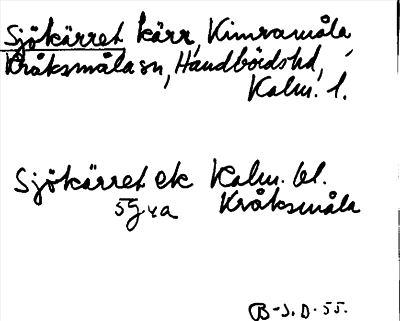 Sjökärret kärr, Kimramåla,
Kråksmåla sn, Handbörds hd,
Kalm. l.
Sjökärret ek Kalm. bl.
5g4a Kråksmåla
B-J.D.55.